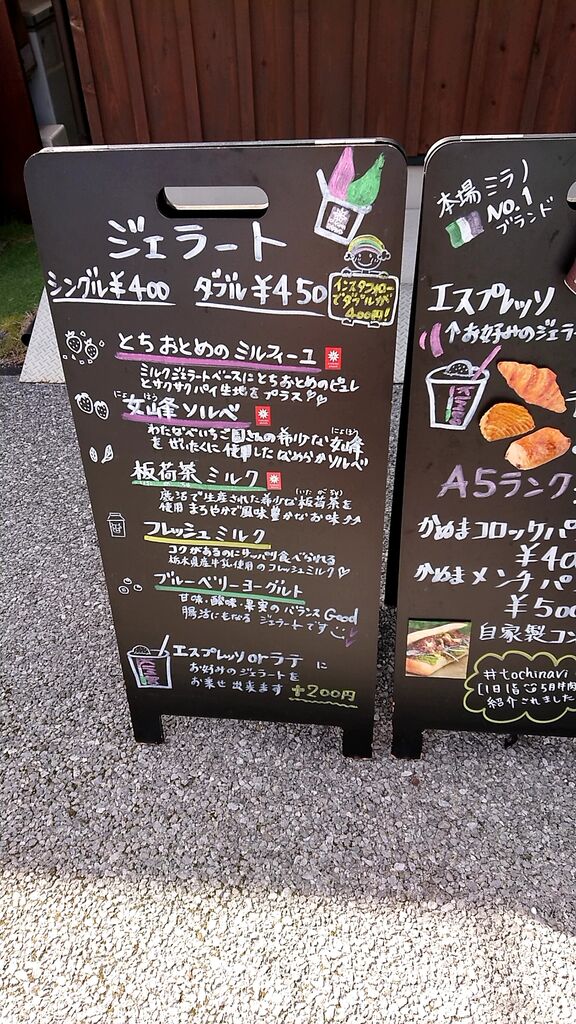 ジェラート
シングル¥400 ダブル¥450
インスタフォロー
でダブルが
400円!
とちおとめのミルフィーユ
ミルクジェラートベースにとちおとめのピュレ
とサクサクパイ生地をプラス♡
にょほう
女峰ソルベ
わたなべいちご園さんの希少な女峰
にょほう
をぜいたくに使用したなめらかソルベ
板荷茶ミルク
鹿沼で生産された希少な板荷茶を
いたがちゃ
使用 まろやかで風味豊かなお味♪♪
フレッシュミルク
コクがあるのにサッパリ食べられる
栃木県産牛乳使用のフレッシュミルク♡
ブルーベリーヨーグルト
甘味・酸味・果実のバランスGood
腸活にもなるジェラートです
エスプレッソorラテ に
お好みのジェラートを
お乗せ出来ます +200円
本場ミラノ
NO.1
ブランド
エスプレッソ
↑お好みのジェラ
A5ランク
かぬまコロッケパ
¥40
かぬまメンチパ
¥500
自家製コン
#tochinavi
紹介されました